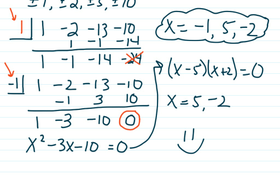 ±1, ±2, ±5, ±10
1 | 1 -2 -13 -10
1 -1 -14
1 -1 -14 -24
-1 | 1 -2 -13 -10
-1 3 10
1 -3 -10 0
x² -3x -10 = 0
x = -1, 5, -2
(x-5)(x+2) = 0
x = 5, -2